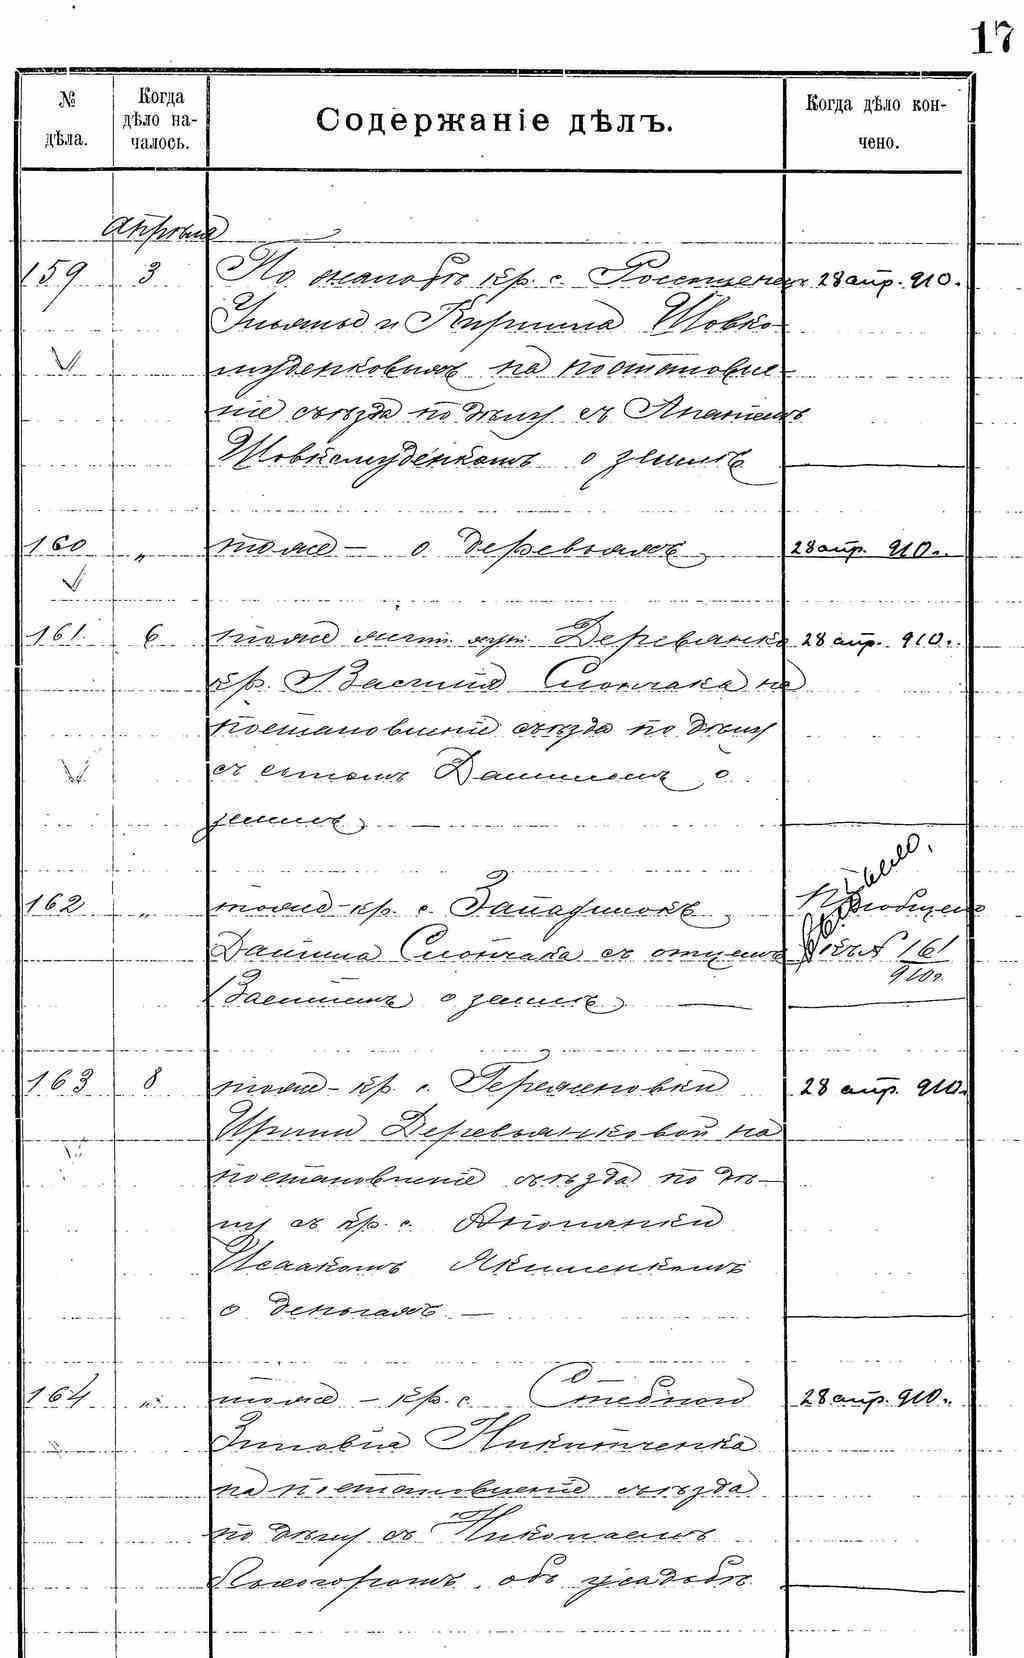 17
№ дѣла.
Когда дѣло началось.
Содержаніе дѣлъ.
Когда дѣло кончено.
Апрѣля
159 3 По жалобѣ кр. с. 28 апр. 910.
Ульяны и Кирилла Шовко-
муденковыхъ на постановле-
ніе съѣзда по дѣлу съ
Шовкомуденкомъ о землѣ
160 „ тоже — о деревьяхъ 28 апр. 910.
161. 6 тоже Деревянко 28 апр. 910.
кр. Василія Слончака на
постановленіе съѣзда по дѣлу
съ сыномъ Даниломъ о
землѣ
162 „ тоже - кр. с. Пріобщено
Данила Слончака съ отцемъ къ № 161
Василіемъ о землѣ — 910.
163 8 тоже - кр. с. Гермоновки 28 апр. 910.
Ирины Деревьянковой на
постановленіе съѣзда по дѣ-
лу съ кр. с.
Исаакомъ Якименкомъ
о деньгахъ —
164 „ тоже - кр. с. Стебной 28 апр. 910.
Зиновія Никитченка
на постановленіе съѣзда
по дѣлу съ Николаемъ
объ усадьбѣ